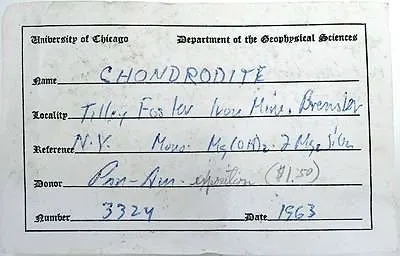 University of Chicago Department of the Geophysical Sciences
Name CHONDRODITE
Locality Tilley Foster Iron Mine. Brewster
Reference N.Y. Mono. Mg(OH)2. 2 Mg2 SiO4
Donor Pan-Am. exposition ($1.50)
Number 3324 Date 1963